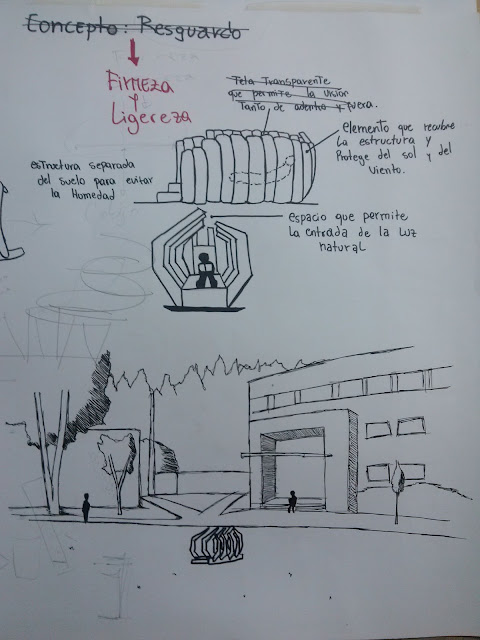 Concepto: Resguardo
Firmeza
y
Ligereza
Tela Transparente
que permite la visión
Tanto de adentro y fuera.
elemento que recubre
La estructura y
Protege del sol y del
viento.
estructura separada
del suelo para evitar
la Humedad
espacio que permite
la entrada de la luz
natural